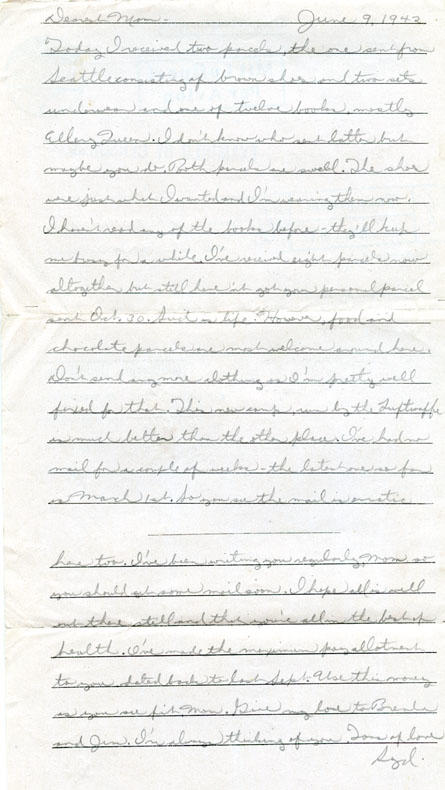 Dearest Mom- June 9, 1942
Today I received two parcels, the one sent from
Seattle consisting of brown shoes and two sets
underwear and one of twelve books, mostly
Ellery Queen. I don't know who sent latter but
maybe you do. Both parcels are swell. The shoes
were just what I wanted and I'm wearing them now.
I haven't read any of the books before - they'll keep
me busy for a while. I've received eight parcels now
altogether but still haven't got your personal parcel
sent Oct. 30. Ain't it life. However, food and
chocolate parcels are most welcome around here.
Don't send any more clothing as I'm pretty well
fixed for that. This new camp, run by the Luftwaffe
is much better than the other place. I've had no
mail for a couple of weeks - the latest one so far
is March 1st. So you see the mail is erratic
here too. I've been writing you regularly, Mom, so
you should get some mail soon. I hope all is well
out there still and that you're all in the best of
health. I've made the maximum pay allotment
to you, dated back to last Sept. Use this money
as you see fit, Mom. Give my love to Brenda
and Jim. I'm always thinking of you. Tons of love
Syd.